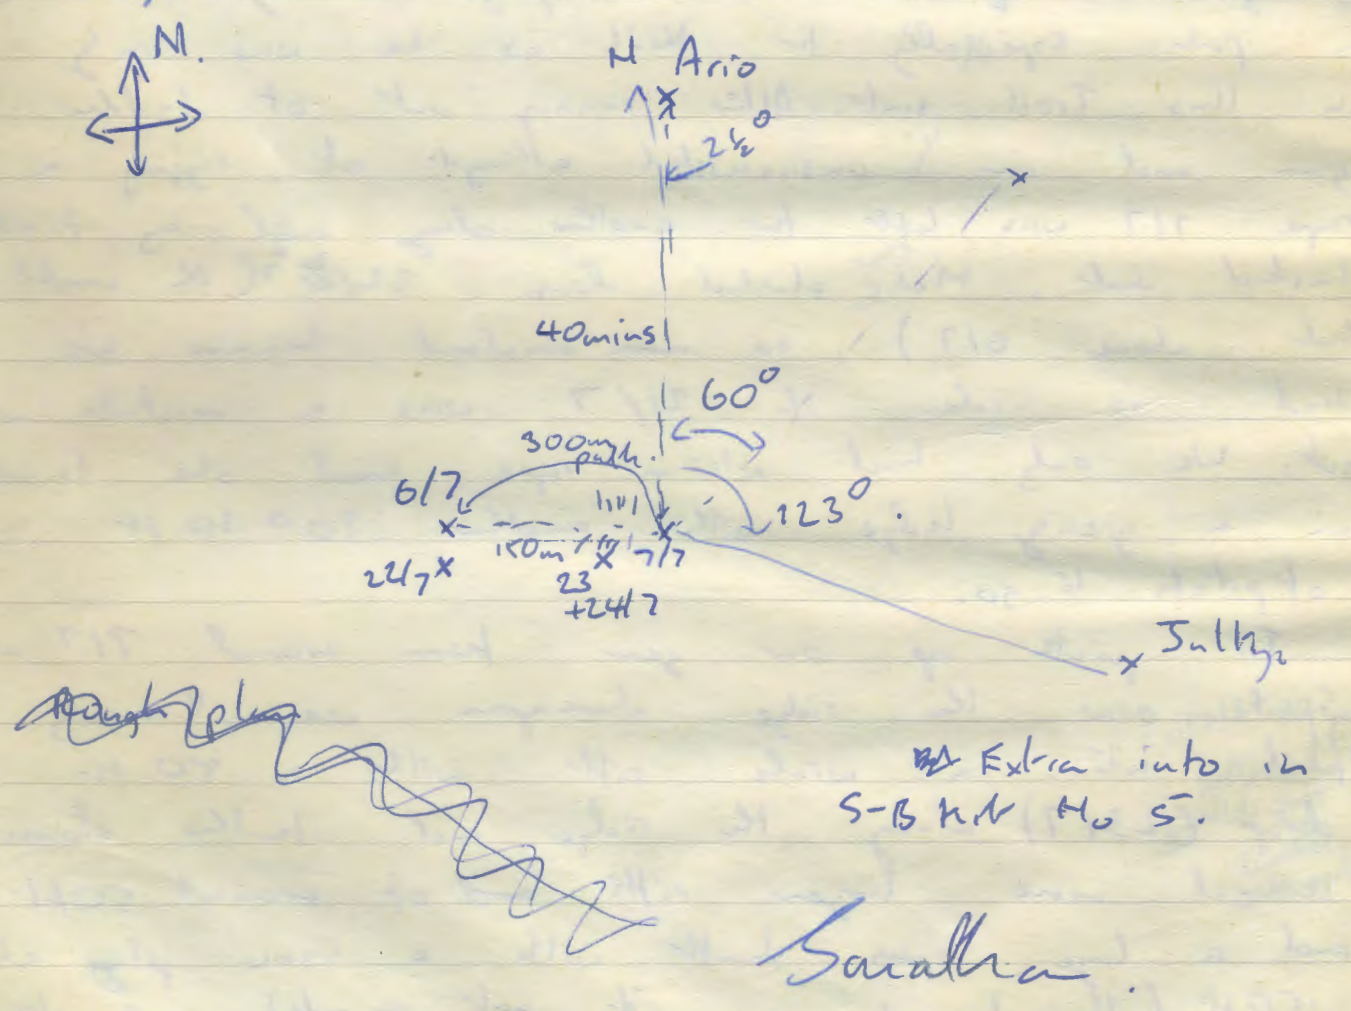 N.
N Ario
2½°
40mins
60°
300m
path.
6/7
123°
150m
7/7
22/7
23
+24/7
Rough plan
Extra info in
S-B Hut No 5.